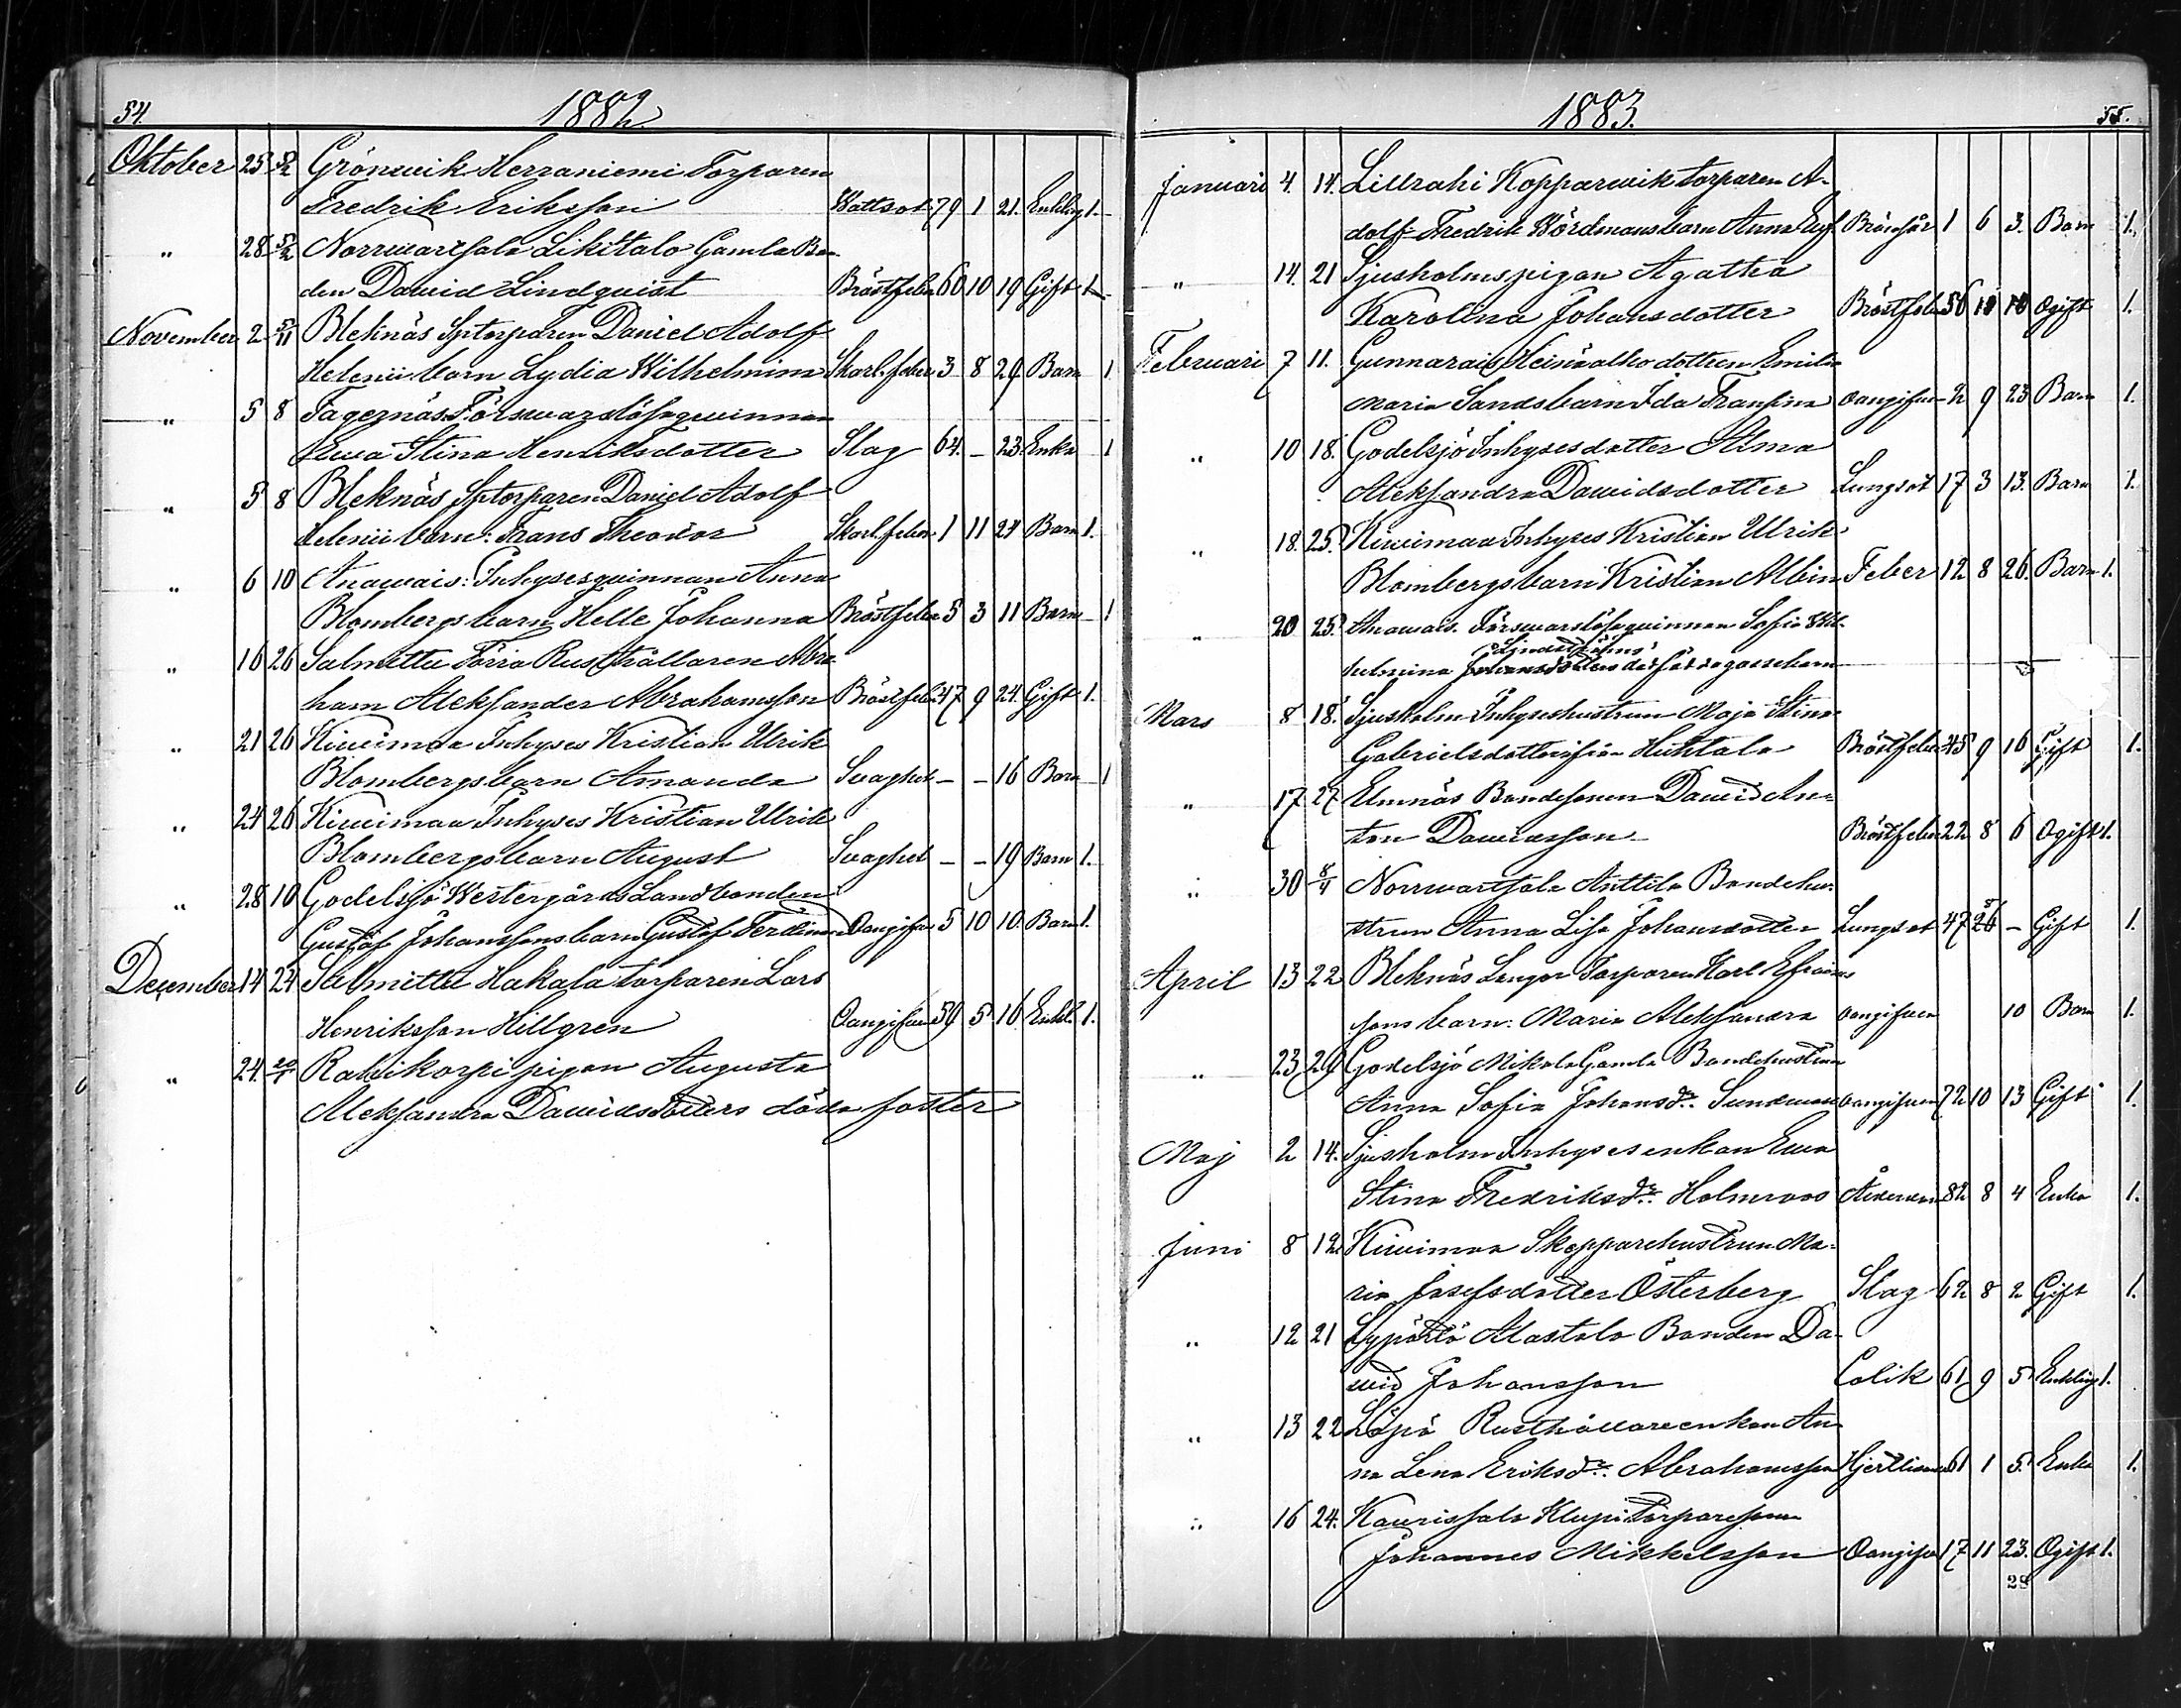 54. 1882.
Oktober 25 5/2 Grönwik Herraniemi Torparen
Fredrik Eriksson Wattsot 79 1 21. Enkling 1.
" 28 5/2 Norrwartsala Likitalo Gamla Bon
den Dawid Lindqvist Bröstfeber 60 10 19 Gift 1
November 2 5/11 Bleknäs Sptorparen Daniel Adolf
Helenii barn Lydia Wilhelmina Skarl. feber 3 8 29 Barn 1
" 5 8 Fagernäs Förswarslösaqwinnan
Ewa Stina Henriksdotter Slag 64. – 23. Enka 1
" 5 8 Bleknäs Sptorparen Daniel Adolf
Helenii barn: Frans Theodor Skarl. feber 1 11 24 Barn 1.
" 6 10 Anawais: Inhysesqvinnan Anna
Blombergs barn Helle Johanna Bröstfeber 5 3 11 Barn 1
" 16 26 Salmittu Töria Rusthållaren Abra
ham Aleksander Abrahamsson Bröstfeber 47 9 24. Gift 1.
" 21 26 Kiwimaa Inhyses Kristian Ulrik
Blombergs barn Amanda Svaghet – – 16 Barn 1
" 24 26 Kiwimaa Inhyses Kristian Ulrik
Blombergs barn August Svaghet – – 19 Barn 1.
" 28 10 Godelsjö Westergårds Landbonden
Gustaf Johanssons barn Gustaf Ferdinand Oangifven 5 10 10. Barn 1.
December 14 24 Salmittu Hakala torparen Lars
Henriksson Hillgren Oangifven 59 5 16 Enkl. 1.
" 24. 20/1 Rahikorpi pigan Augusta
Aleksandra Dawidsdotters döda foster
1883. 55.
Januari 4. 14. Lillrahi Kopparwik torparen A-
dolf Fredrik Wördmans barn Anna Brännsår 1 6 3. Barn 1.
" 14. 21 Sjusholms pigan Agatha
Karolina Johansdotter Bröstfeber 56 10 Ogift 1.
Februari 7 11. Gunnarais Heinäalho dottren Emilia
Maria Sandsbarn Ida Fransina oangifven 2 9 23 Barn 1.
" 10 18. Godelsjö Inhysesdotter Alma
Aleksandra Dawidsdotter Lungsot 17 3 13. Barn 1.
" 18. 25. Kiwimaa Inhyses Kristian Ulrik
Blombergs barn Kristian Albin Feber 12 8 26. Barn 1.
" 20 25. Anawais. Förswarslösaqwinnan Sofia Wil-
Lindströms
helmina Johansdotters dödfödda gossebarn
Mars 8 18. Sjusholm Inhyseshustrun Maja Stina
Gabrielsdotter ifrån Huhtala Bröstfeber 45 9 16 Gift 1.
" 17 27 Elmnäs Bondesonen Dawid An-
ton Dawidsson Bröstfeber 22 8 6 Ogift 1.
" 30 8/4 Norrwartsala Anttila Bondehu-
strun Anna Lisa Johansdotter Lungsot 47 26 – Gift 1.
April 13 22 Bleknäs Torparen Karl Efraims
sons barn: Maria Aleksandra oangifven 10 Barn 1.
" 23 29 Godelsjö Mikola Gamla Bondehustrun
Anna Sofia Johansdr. Sundman oangifven 72 10 13 Gift 1.
Maj 2 14. Sjusholm Inhysesenkan Ewa
Stina Fredriksdr. Holmroos Ålderdom 82 8 4 Enka 1.
Juni 8 12. Kiwimaa Skepparehustrun Ma-
ria Josefsdotter Österberg Slag 62 8 2 Gift 1.
" 12 21 Lypärtö Alastalo Bonden Da-
wid Johansson Colik 61 9 5 Enkling 1.
" 13 22 Löpö Rusthållareenkan An-
na Lena Eriksdr. Abrahamsson Hjertlidande 61 1 5. Enka 1.
" 16 24. Kaurissalo Klupi Torparesonen
Johannes Mikkelsson Oangifven 17 11 23. Ogift 1.
28